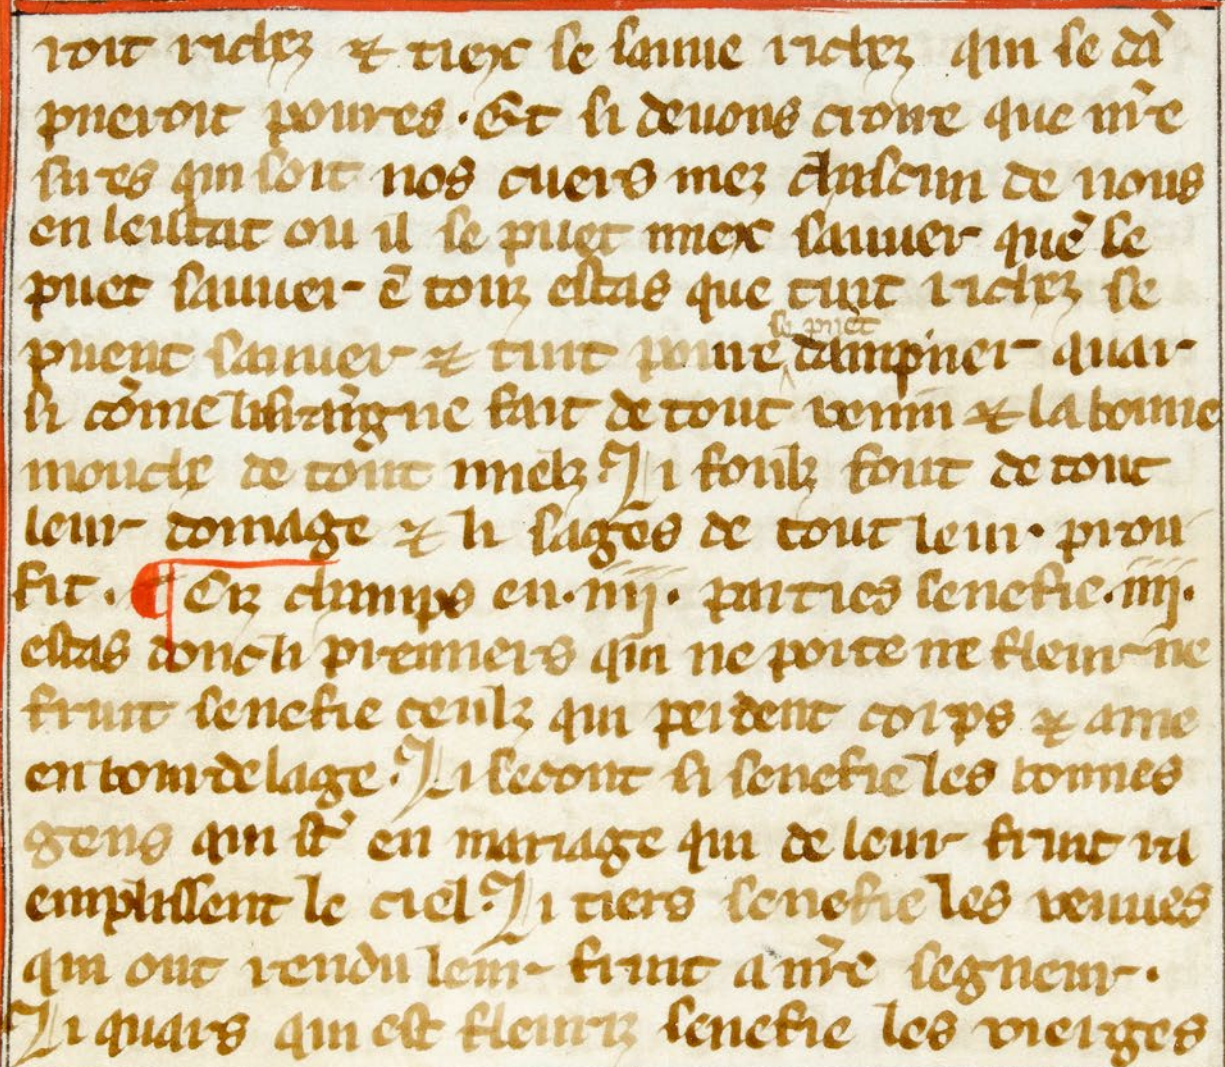 roit richez ⁊ tiex se sauue richez qui se dā
pneroit poures. Et si deuons croire que nr̄e
sires qui soit nos cuers mez chascun de nous
en lestat ou il se puet miex sauuer que se
puet sauuer ē touz estas que tuit richez se
puent sauuer ⁊ tuit poure se puet dampner quar
si cōme lisraigne fait de tout venin ⁊ la bonne
mouche de tout mielz. Li folz font de tout
leur domage ⁊ li sages de tout leur prou
fit. ¶ Cez champs en .iiij. parties senefie .iiij.
estas donc li premiers qui ne porte ne fleur ne
fruit senefie ceulz qui perdent corps ⁊ ame
en bourdelage. Li secont si senefie les bonnes
gens qui st̄ en mariage qui de leur fruit ra
emplissent le ciel. Li tiers senefie les veuues
qui ont rendu leur fruit a nr̄e segneur.
Li quars qui est fleuriz senefie les vierges